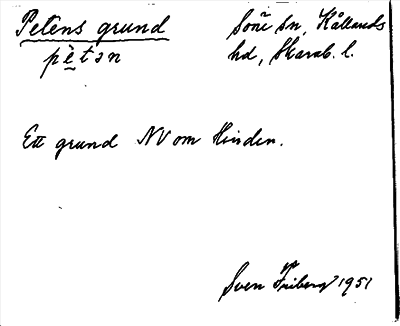 Petens grund
pètən
Sunne sn, Kållands
hd, Skarab. l.
Ett grund NV om Hinden.
Sven Friberg 1951